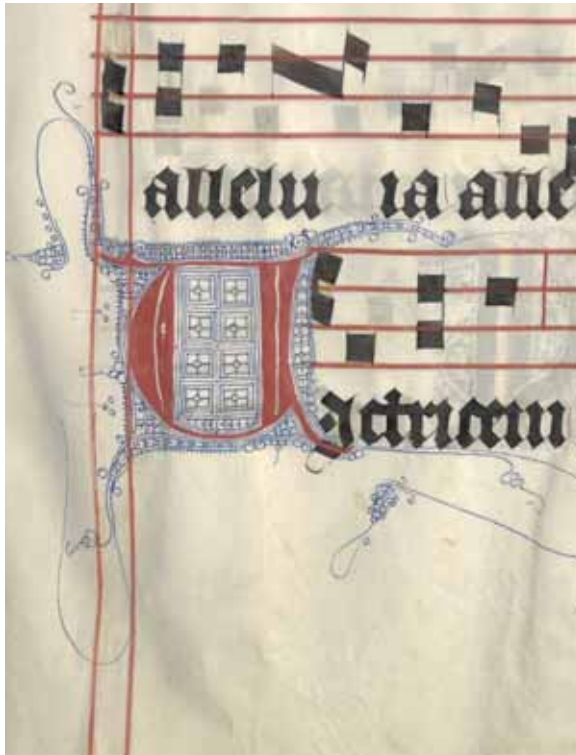 allelu ia alle
Victricem